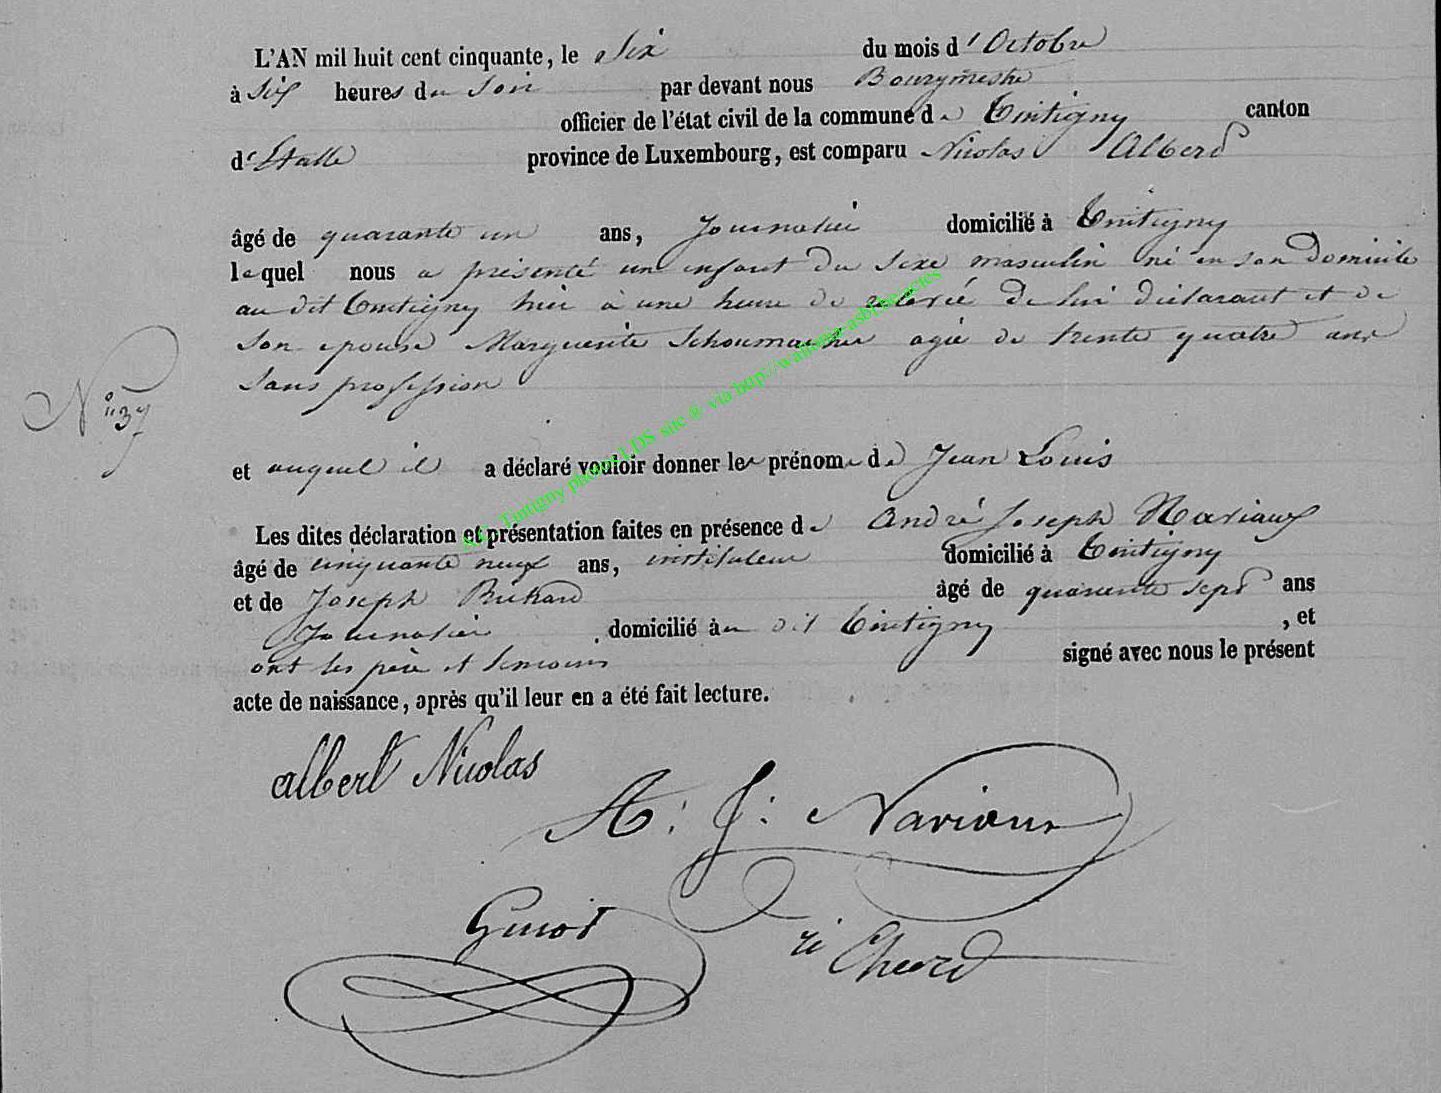 L'AN mil huit cent cinquante, le Six du mois d'Octobre
à Six heures du Soir par devant nous Bourgmestre
officier de l'état civil de la commune de Tintigny canton
d'Etalle province de Luxembourg, est comparu Nicolas Albert
âgé de quarante un ans, Journalier domicilié à Tintigny
lequel nous a présenté un enfant du Sexe masculin né en son Domicile
au dit Tintigny hier à une heure de relevée de lui déclarant et de
Son epouse Marguerite Schoumacker agée de trente quatre ans
Sans profession
N° 37
et auquel il a déclaré vouloir donner les prénoms de Jean Louis
Les dites déclaration et présentation faites en présence de André Joseph Nariaux
âgé de cinquante neuf ans, instituteur domicilié à Tintigny
et de Joseph Richard âgé de quarante sept ans
Journalier domicilié à au dit Tintigny , et
ont les père et temoins signé avec nous le présent
acte de naissance, après qu'il leur en a été fait lecture.
albert Nicolas
A: J: Nariaux
Guiot
ri Cherd
A.C. Tintigny photos LDS site ® via http://wallonia-asbl.be/actes